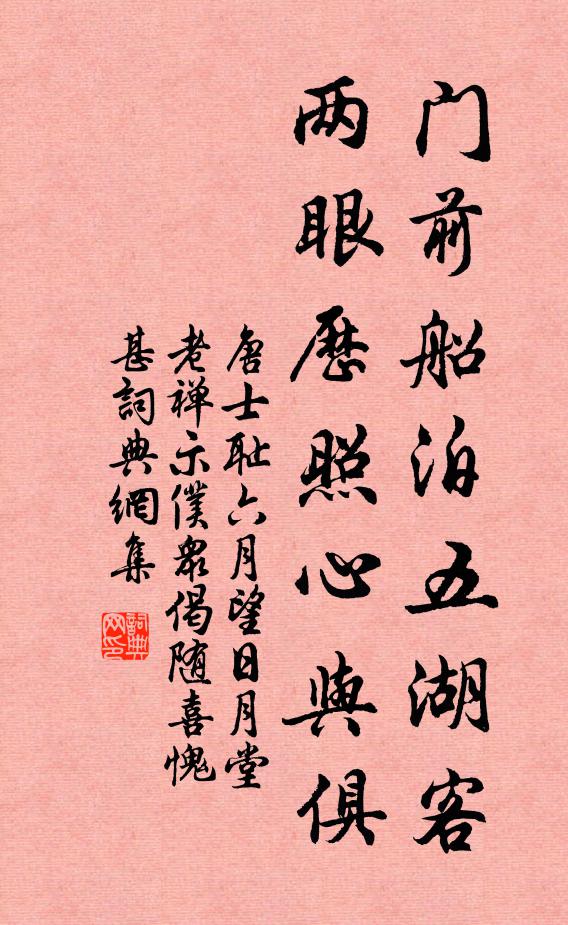 门前船泊五湖客
两眼历照心与俱
唐士耻六月望日月堂
老禅示仆众偈随喜愧
甚詞典網集
詞典网印